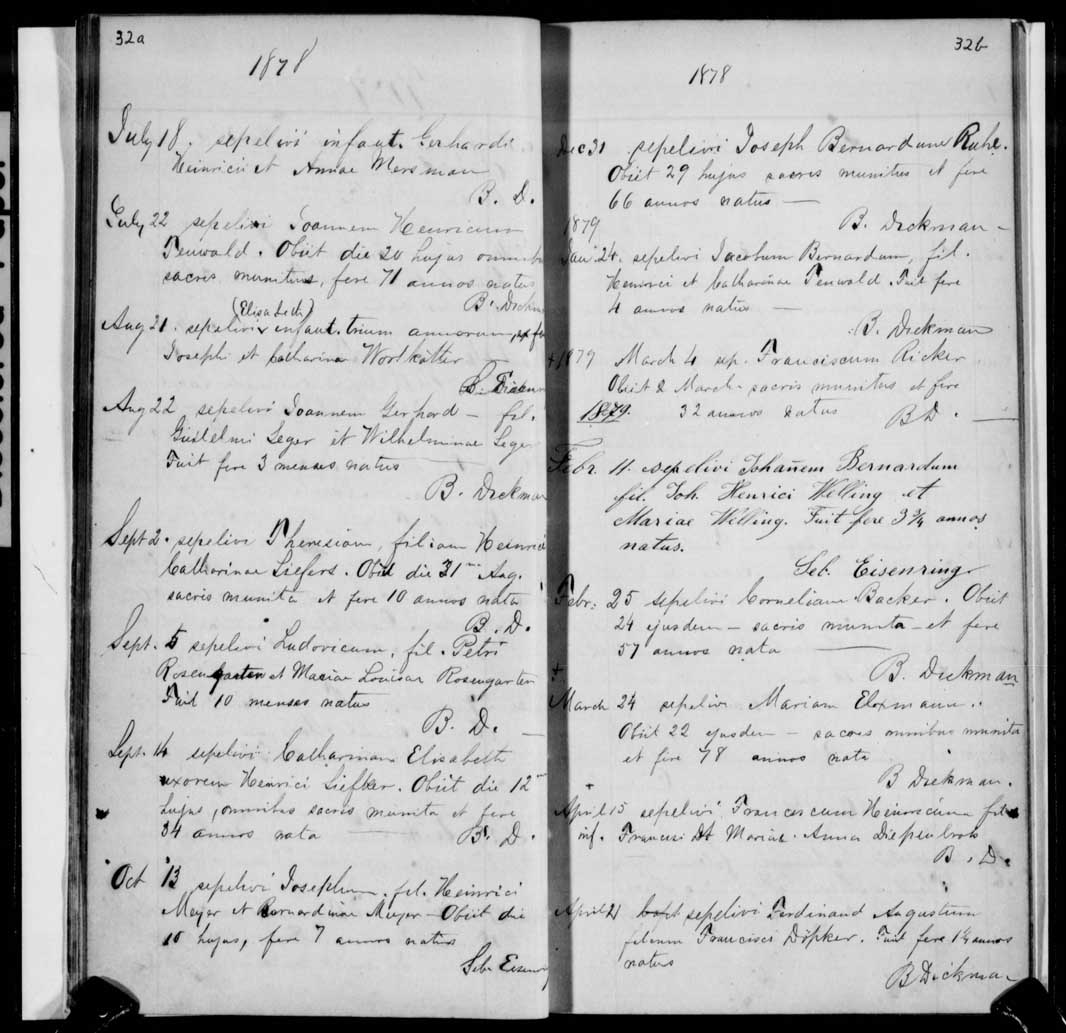 32a
1878
July 18. sepelivi infant. Gerhardi
Heinrici et Annae Mersman
B. D.
July 22 sepelivi Joannem Henricum
Tenwald. Obiit die 20 hujus omnibus
sacris munitus, fere 71 annos natus
B. Dickman
(Elisabeth)
Aug 21. sepelivi infant. trium annorum,
Joseph et Catharina Wordkotter
B. Dickman
Aug 22 sepelivi Joannem Gerhard – fil.
Guilelmi Seger et Wilhelminae Seger
Fuit fere 3 menses natus
B. Dickman
Sept 2. sepelivi Theresiam, filiam Heinrici
Catharinae Siefers. Obiit die 31 Aug.
sacris munita et fere 10 annos nata
B. D.
Sept. 5 sepelivi Ludovicum, fil. Petri
Rosengarten et Mariae Louisae Rosengarten
Fuit 10 menses natus
B. D. —
Sept. 14 sepelivi Catharinam Elisabeth
uxorem Henrici Siefker. Obiit die 12
hujus, omnibus sacris munita et fere
34 annos nata — B. D.
Oct 13 sepelivi Josephum, fil. Heinrici
Meyer et Bernardinae Meyer – Obiit die
10 hujus, fere 7 annos natus
Seb. Eisenring
32b
1878
Dec 31 sepelivi Joseph Bernardum Ruhe.
Obiit 29 hujus sacris munitus et fere
66 annos natus —
B. Dickman –
1879
Jan. 24. sepelivi Jacobum Bernardum, fil.
Henrici et Catharinae Tenwald. Fuit fere
4 annos natus —
B. Dickman
+ 1879 March 4 sep. Franciscum Ricker
Obiit 2 March – sacris munitus et fere
1879. 32 annos natus B D. —
Febr. 11. sepelivi Johañem Bernardum
fil. Joh. Henrici Welling et
Mariae Welling. Fuit fere 3 3/4 annos
natus.
Seb. Eisenring
Febr: 25 sepelivi Corneliam Backer. Obiit
24 ejusdem – sacris munita et fere
57 annos nata —
B. Dickman
+
March 24 sepelivi Mariam Eloxmann..
Obiit 22 ejusdem – sacris omnibus munita
et fere 78 annos nata
B Dickman.
+
April 15 sepelivi Franciscum Heinricum fil
inf. Francisci et Mariae Anna Diepenbrok
B. D.
April 21 sepelivi Ferdinand Augustum
filium Francisci Döpker. Fuit fere 1 1/2 annos
natus
B Dickman